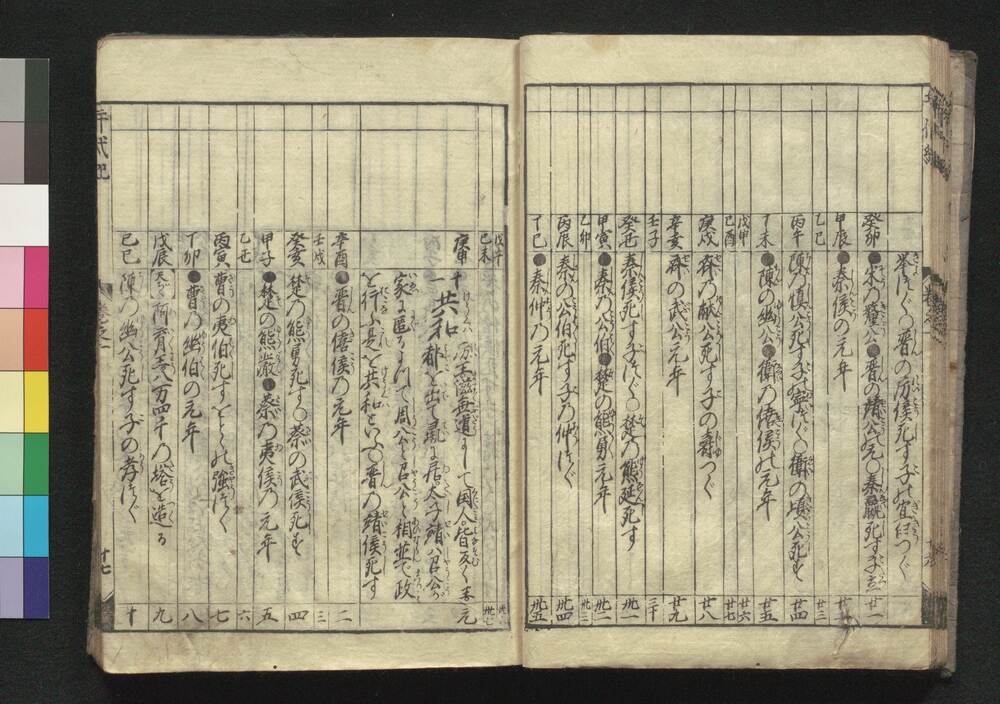 峯つぐ 晋の厉侯死す子の宜臼つぐ
癸卯 ●宋の釐公●晋の靖公元○秦嬴死す子立 廿一
甲辰 ●秦侯の元年
乙巳 廿三
丙午 陳の慎公死す子の寧つぐ 衛の頃公死す 廿四
丁未 ●陳の幽公●衛の僖侯の元年 廿五
戊申 廿六
己酉 廿七
庚戌 斉の献公死す子の寿つぐ 廿八
辛亥 斉の武公元年 廿九
壬子 三十
癸丑 秦侯死す子つぐ 楚の熊延死す 卅一
甲寅 ●秦の公伯●楚の熊勇元年 卅二
乙卯 卅三
丙辰 秦の公伯死す子の仲つぐ 卅四
丁巳 ●秦仲の元年 卅五
戊午
己未 卅七
庚申 十一 共和 厉王無道にして国人皆反く王 元
都を出て彘に居太子靖ハ召公が
家に匿る よつて周公と召公と相並で政
を行ふ是を共和といふ○晋の靖侯死す
辛酉 ●晋の僖侯の元年 二
壬戌 三
癸亥 楚の熊勇死す○蔡の武侯死す 四
甲子 ●楚の熊厳●蔡の夷侯の元年 五
乙丑 六
丙寅 曹の夷伯死すおとゝの強つぐ 七
丁卯 ●曹の幽伯の元年 八
戊辰 天ぢく阿育王八万四千の塔を造る 九
己巳 陳の幽公死す子の孝つぐ 十
年代記
十七